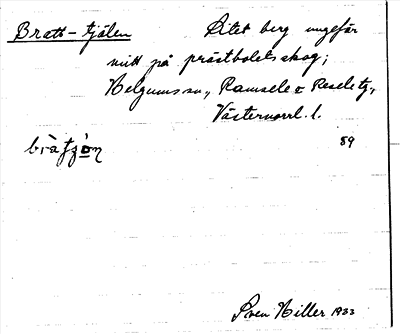 Bratt-tjälen Litet berg ungefär
mitt på prästbolets skog;
Helgums sn., Ramsele o Resele tg.,
Västernorrl. l.
89
Sven Hiller 1933